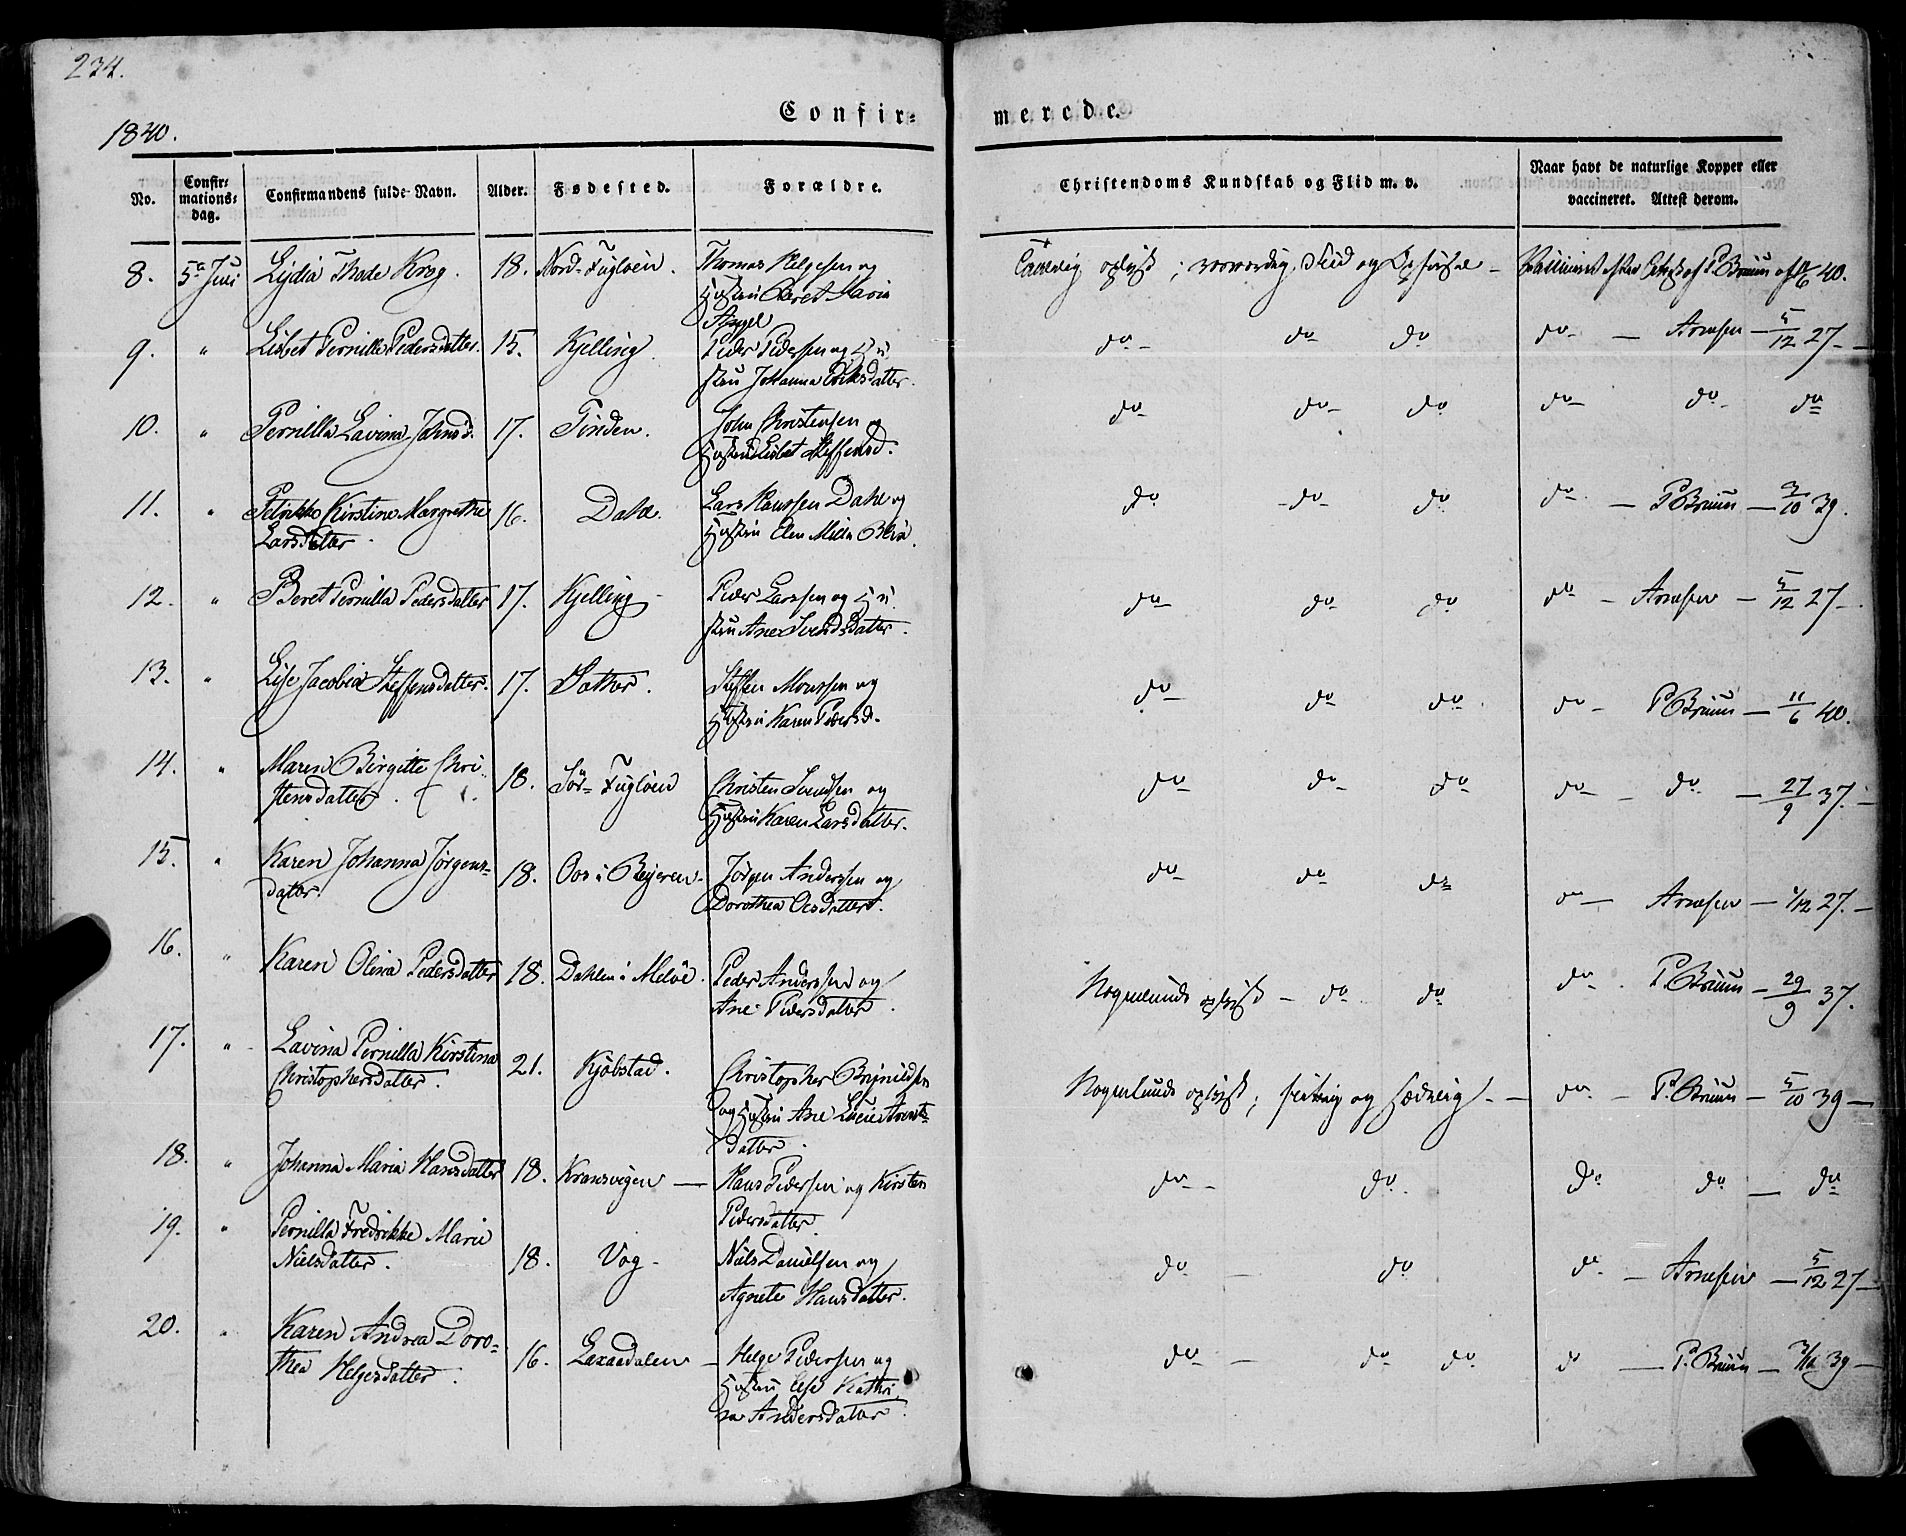 234.
1840.
Confir=
merede.
No.
Confir-
mations-
dag.
Confirmandens fulde Navn.
Alder.
Fødested.
Forældre.
Christendoms Kundskab og Flid m. v.
Naar havt de naturlige Kopper eller
vaccineret. Attest derom.
8. 5te Juli Lydia Thode Krog. 18. Nord-Fugløen. Thomas Helgesen og
Hustru Beret Maria
Angel
oplyst; Flid og Opførsel – Vaccineret efter Attest af P Bruun af 11/6 40.
9. " Lisbet Pernilla Pedersdatter. 15. Kjelling. Peder Pedersen og Hu-
stru Johanna Eriksdatter.
do – do do do – Arnesen – 5/12 27 –
10. " Pernilla Lavina Johnsd. 17. Tinden. John Christensen og
Hustru Lisbet Steffensd.
do – do – do do – do – do
11. " Petrikke Kirstine Margrethe 16. Dahl. Lars Hanssen Dahl og
Larsdatter.
Hustru Elen Milla
do – do – do do – P Bruun – 3/10 39.
12. " Beret Pernilla Pedersdatter 17. Kjelling – Peder Larssen og Hu-
stru Ane Svendsdatter.
do – do do do – Arnesen – 5/12 27 –
13. " Lise Jacobia Steffensdatter. 17. Sather. Steffen Monssen og
Hustru Karen Pedersd.
do – do do do – P Bruun – 11/6 40.
14. " Maren Birgitte Chri-
stensdatter. 18. Sör-Fugløen Christen Svendsen og
Hustru Karen Larsdatter.
do do do do – do – 27/9 37. –
15. " Karen Johanna Jörgens-
datter. 18. Oos i Bejeren – Jörgen Anderssen og
Dorothea Olsdatter.
do do do do – Arnesen – 1/12 27. –
16. " Karen Olina Pedersdatter 18. Dahlen i Meløe. Peder Anderssen og
Ane Pedersdatter.
Nogenlunde oplyst – do do do – P Bruun – 29/9 37.
17. " Lavina Pernilla Kirstina
Christophersdatter. 21. Kjöbstad. Christopher Brynildsen
og Hustru Ane Lucie Arnts-
datter.
Nogenlunde oplyst; flittig og sædelig – do – P. Bruun – 5/10 39 –
18. " Johanna Maria Hansdatter 18. Kransvigen – Hans Pedersen og Kirsten
Pedersdatter
do – do. do do – do
19. " Pernilla Fredrikke Marie
Nielsdatter. 18. Vog – Niels Danielsen og
Agnete Hansdatter.
do – do do – Arnesen – 5/12 27 –
20. " Karen Andrea Doro-
thea Helgesdatter. 16. Laxaadalen – Helge Pedersen og
Hustru Else Kathri-
na Andersdatter.
do – do do do – P. Bruun – 3/10 39 –